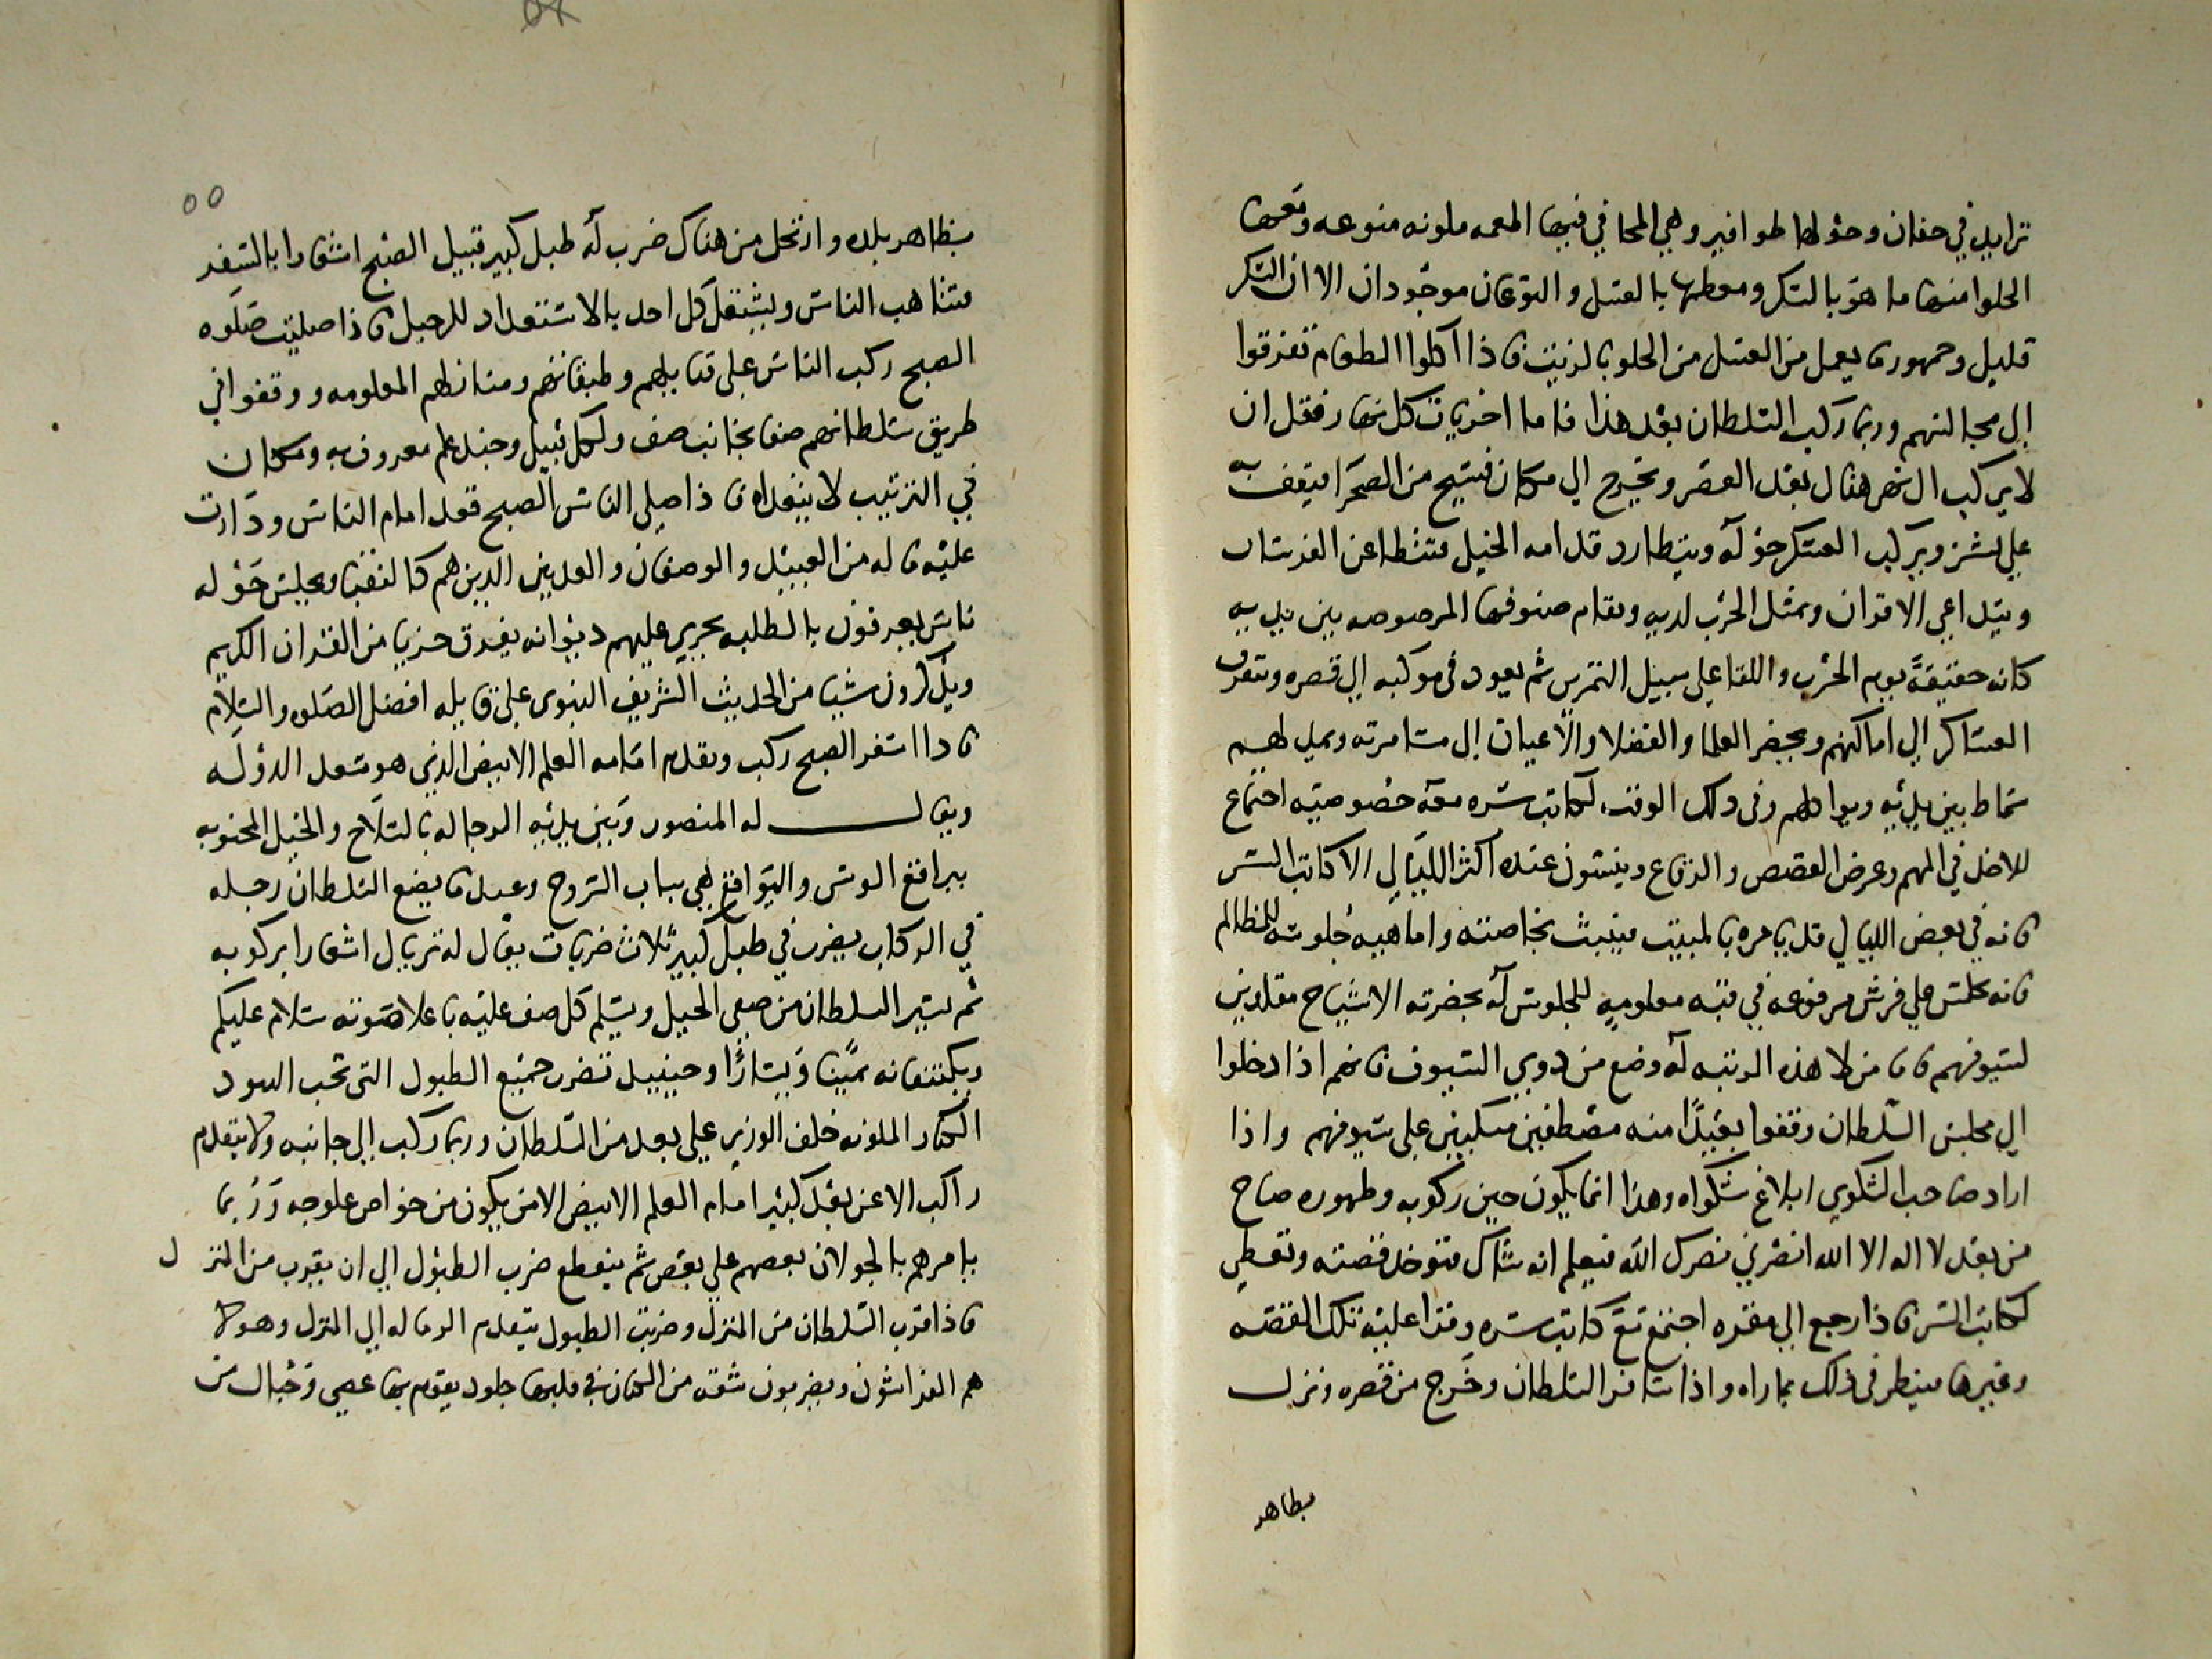 ترايد في جفان وحولها طوافير وهي المحافي فيها اطعمه ملونه منوعه ومعها
الحلوا منها ما هو بالسكر ومعظمها بالعسل والنوعان موجودان الا ان السكر
قليل وجمهورها يعمل من العسل من الحلو بالزيت فاذا اكلوا الطعام تفرقوا
الى مجالسهم وربما ركب السلطان بعد هذا فاما اخريات كل نهار فقل ان
لا يركب ال نهرهنال بعد العصر ويخرج الي مكان فسيح من الصحرا فيقف به
علي نشز ويركب العسكر حوله ويتطارد قدامه الخيل فتنطاعن الفرسان
ويتداعي الاقران ويمثل الحرب لديه وتقام صفوفها المرصوصه بين يديه
كانه حقيقة يوم الحرب واللقا علي سبيل التمرس ثم يعود في موكبه الي قصره وتتفرق
العساكر الي اماكنهم ويحضر العلما والفضلا والاعيان الى مسامرته ويمد لهم
سماط بين يديه ويواكلهم وفي ذلك الوقت لكاتب سره معه خصوصيه اجتماع
للاخذ في المهم وعرض القصص والرقاع وينسون عنده اكثر الليالي الا كاتب السر
فانه في بعض الليالي قد يامره بالمبيت فيبيت بخاصته واما هيبه جلوسه للمظالم
فانه يجلس علي فرش مرفوعه في قبه معلوميه للجلوس له بحضرته الاشياح مقلدين
لسيوفهم فان من لا هذه الرتبه له وضع من دوي السيوف فانهم اذا دخلوا
الي مجلس السلطان وقفوا بعيدا منه مصطفين متكيين علي سيوفهم واذا
اراد صاحب الشكوي ابلاغ شكواه وهذا انما يكون حين ركوبه وظهوره صاح
من بعد لا اله الا الله انصرني نصرك الله فيعلم انه شاك فتوخذ قصته وتعطي
لكاتب السر فاذا رجع الي مقره اجتمع مع كاتب سره وقرا عليه تلك القصه
وغيرها فينظر في ذلك بما راه واذا سافر السلطان وخرج من قصره ونزل
بظاهر
٥٥
بظاهر بلده وارتحل من هناك ضرب له طبل كبير قبيل الصبح اشعارا بالسفر
فتناهب الناس ويشتغل كل احد بالاستعداد للرحيل فاذا صليت صلوه
الصبح ركب الناس علي قبايلهم وطبقاتهم ومنازلهم المعلومه ووقفوا في
طريق سلطانهم صفا بجانب صف ولكل قبيل وجند علم معروف به ومكان
في الترتيب لا يتعداه فاذا صلي الناس الصبح قعد امام الناس ودارت
عليه فاله من العبيد والوصفان والعديين الدين هم كالنقبا ويجلس حوله
ناس يعرفون بالطلبه يجري عليهم ديوانه يقرون حزبا من القران الكريم
ويذكرون شيا من الحديث الشريف النبوي علي قايله افضل الصلوه والسلام
فادا اسفر الصبح ركب وتقدم امامه العلم الابيض الذي هو سعد الدوله
ويقال له المنصور وبين يديه الرجاله بالسلاح والخيل المجنوبه
ببراقع الوشي والبواقع هي بباب السروج وعندما يضع السلطان رجله
في الركاب يضرب في طبل كبير ثلاث ضربات يقال له تريال اشعارا بركوبه
ثم يسير السلطان من صفي الخيل ويسلم كل صف عليه باعلا صوته سلام عليكم
ويكتنفانه يمينا ويسارا وحينيد تضرب جميع الطبول التي تحب البنود
الكبار الملونه خلف الوزير علي بعد من السلطان وربما ركب الي جانبه ولا يتقدم
راكب الا عن بعد كبير امام العلم الابيض الا من يكون من خواص علوجه وربما
يامرهم بالجولان بعضهم علي بعض ثم ينقطع ضرب الطبول الي ان يقرب من المنزل
فاذا قرب السلطان من المنزل وضربت الطبول يتقدم الرماله الي المنزل وهولا
هم الفراشون ويضربون شقه من الكتان في قلبها جلود يقوم بها عصي وحبال من